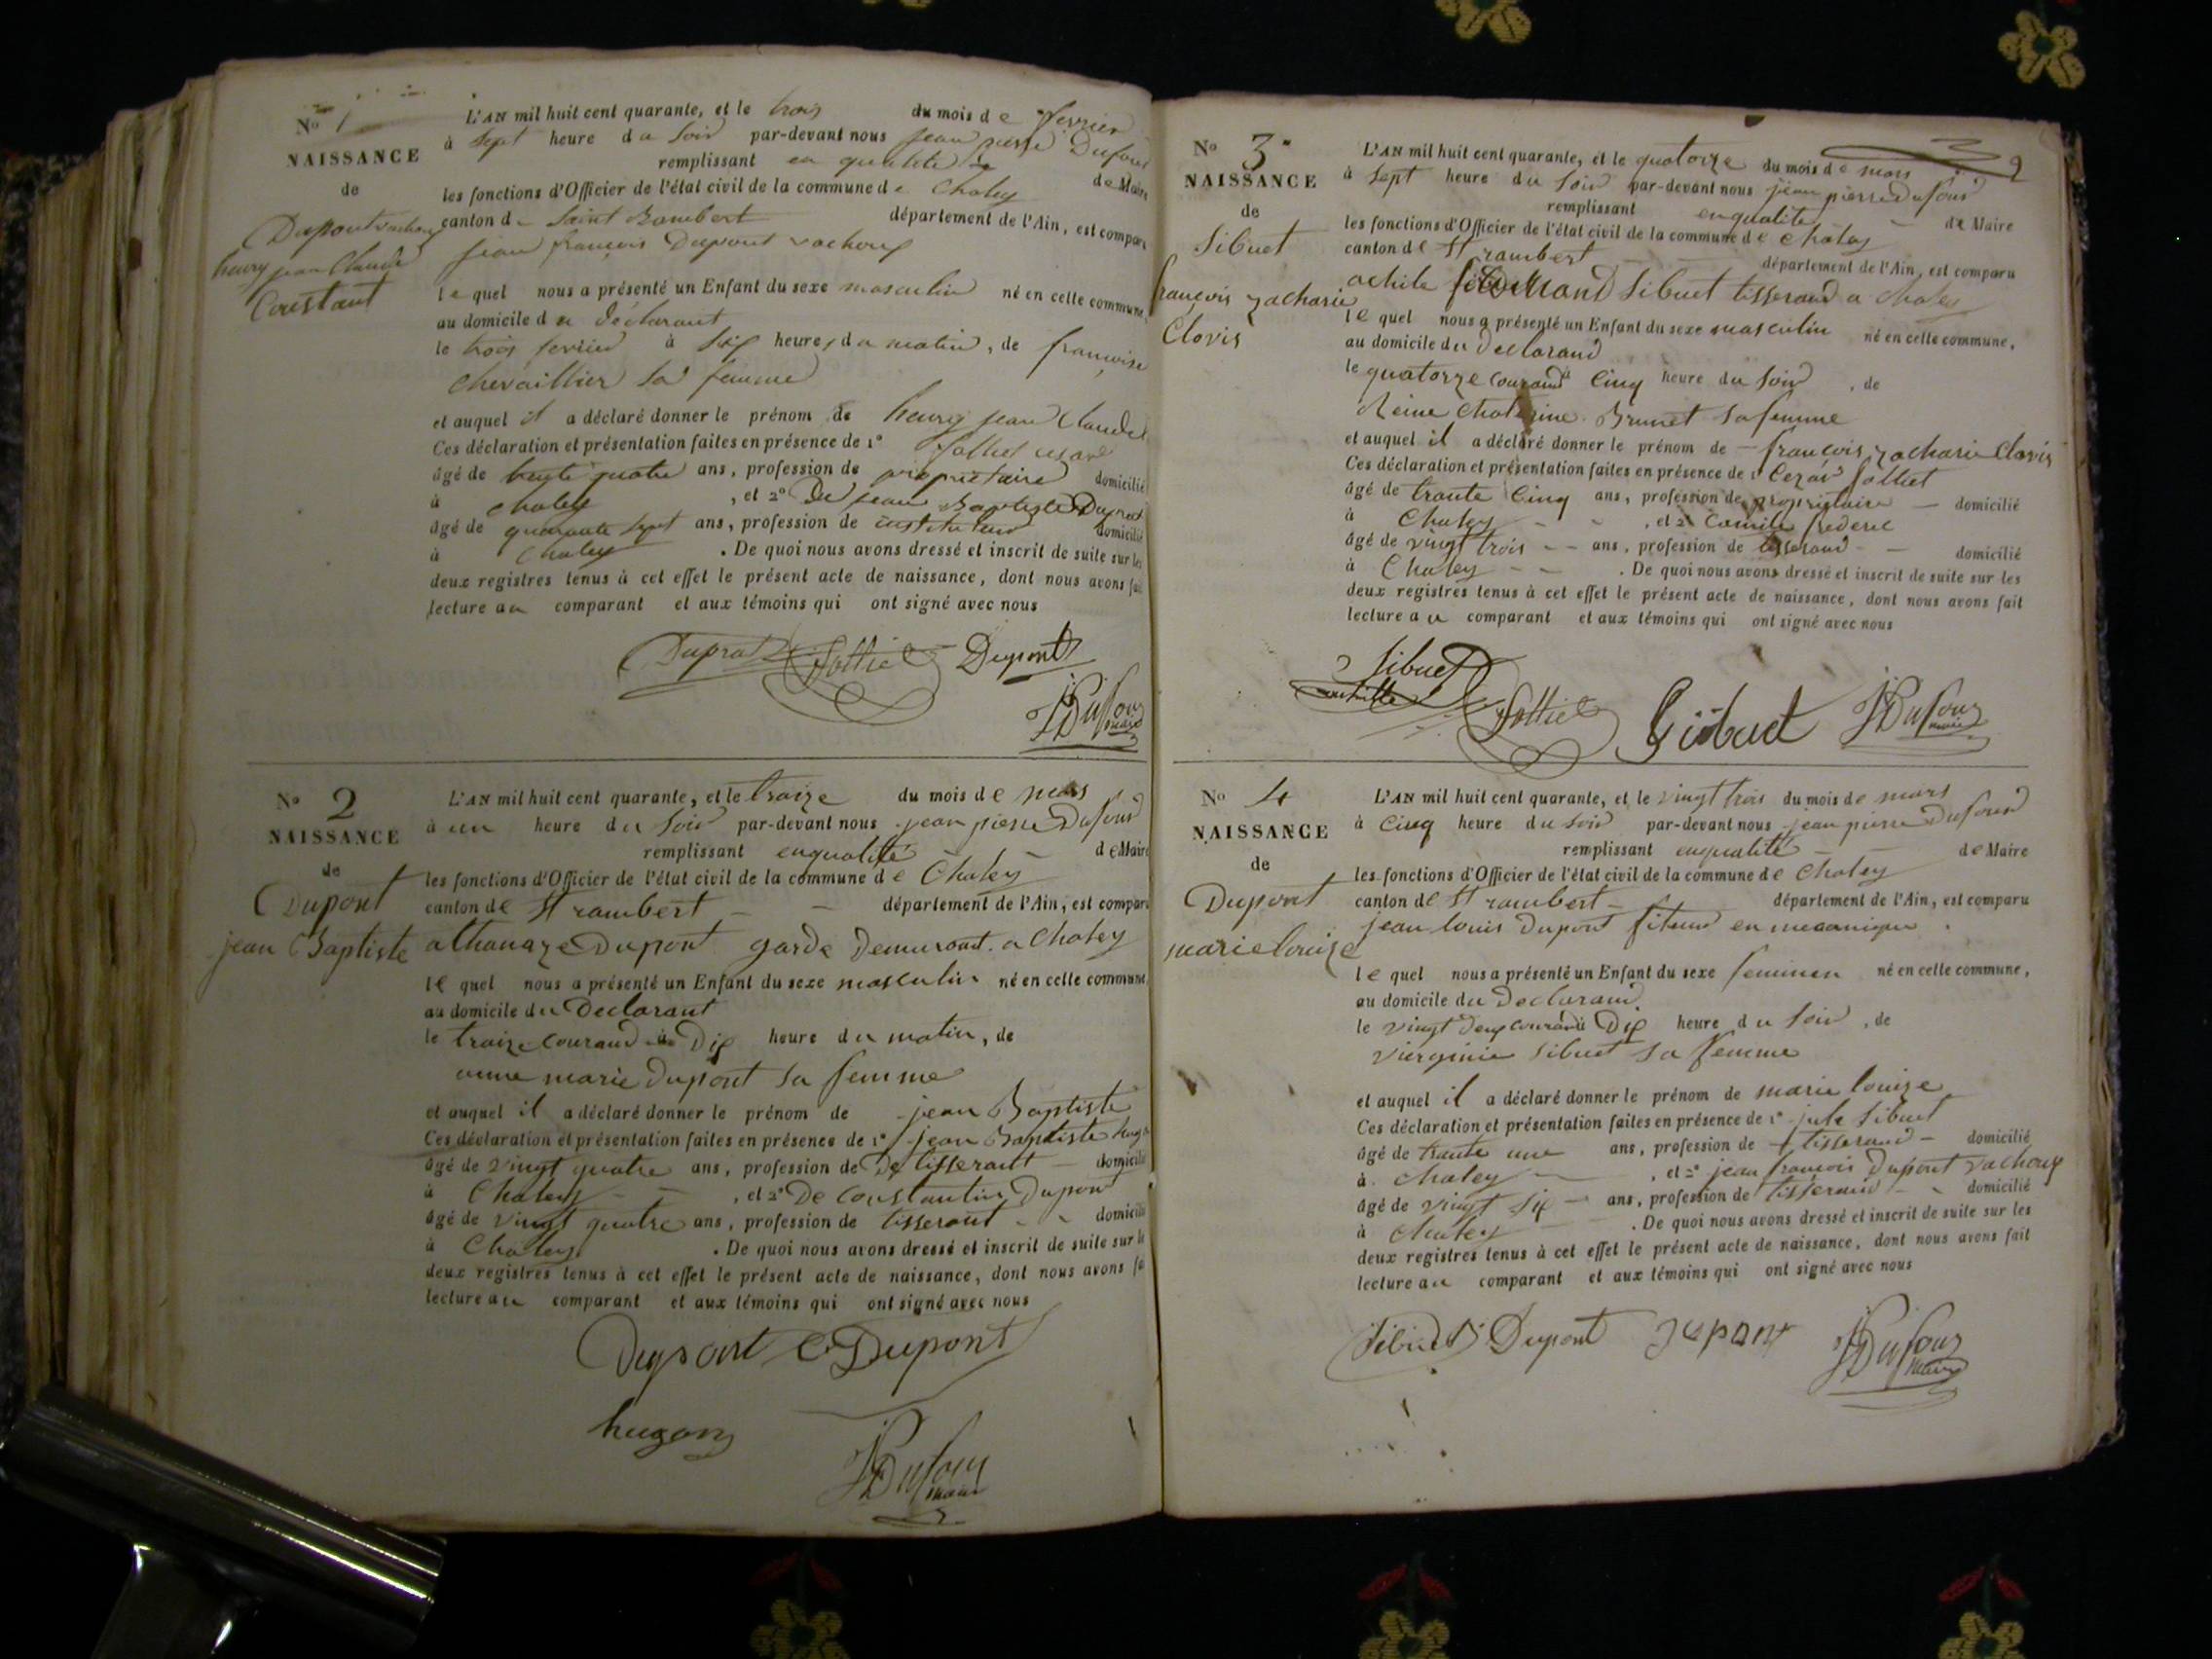 No 1
NAISSANCE
de
Dupont vachoux
henry jean Claude
Constant
L'AN mil huit cent quarante, et le trois du mois de fevrier
à sept heure du soir par-devant nous jean pierre Dufour
remplissant en qualité de de Maire
les fonctions d'Officier de l'état civil de la commune de Chaley
canton de Saint Rambert département de l'Ain, est comparu
jean françois Dupont vachoux
lequel nous a présenté un Enfant du sexe masculin né en cette commune,
au domicile du déclarant
le trois fevrier à six heures du matin, de françoise
chevaillier sa femme
et auquel il a déclaré donner le prénom de henry jean Claude
Ces déclaration et présentation faites en présence de 1°
âgé de trente quatre ans, profession de propriétaire domicilié
à chaley, et 2° De jean Baptiste Duprat
âgé de quarante sept ans, profession de instituteur domicilié
à Chaley. De quoi nous avons dressé et inscrit de suite sur les
deux registres tenus à cet effet le présent acte de naissance, dont nous avons fai
lecture au comparant et aux témoins qui ont signé avec nous
Duprat Dupont
JP Dufour
maire
No 2
NAISSANCE
de
Dupont
jean Baptiste
L'AN mil huit cent quarante, et le traize du mois de mars
à un heure du soir par-devant nous jean pierre Dufour
remplissant en qualité de Maire
les fonctions d'Officier de l'état civil de la commune de Chaley
canton de St rambert département de l'Ain, est compar
athanaze Dupont garde Demurant a Chaley
le quel nous a présenté un Enfant du sexe masculin né en cette commune,
au domicile du Declarant
le traize courand à Dix heure du matin, de
anne marie Dupont sa femme
et auquel il a déclaré donner le prénom de jean Baptiste
Ces déclaration et présentation faites en présence de 1° jean Baptiste hugon
âgé de vingt quatre ans, profession de De tisserant domicilié
à Chaley, et 2° De Constantin Dupont
âgé de vingt quatre ans, profession de tisserant domicilié
à Chaley. De quoi nous avons dressé et inscrit de suite sur le
deux registres tenus à cet effet le présent acte de naissance, dont nous avons fa
lecture au comparant et aux témoins qui ont signé avec nous
Dupont C Dupont
hugon
JP Dufour
maire
2
No 3
NAISSANCE
de
Sibuet
françois zacharie
Clovis
L'AN mil huit cent quarante, et le quatorze du mois de mars
à sept heure du soir par-devant nous jean pierre Dufour
remplissant en qualité de Maire
les fonctions d'Officier de l'état civil de la commune de Chaley
canton de St rambert département de l'Ain, est comparu
achile Sibuet tisserand a chaley
le quel nous a présenté un Enfant du sexe masculin né en cette commune,
au domicile du Declarand
le quatorze courand à Cinq heure du soir, de
Reine Chaterine Brunet sa femme
et auquel il a déclaré donner le prénom de françois zacharie Clovis
Ces déclaration et présentation faites en présence de 1° Cezar
âgé de trante Cinq ans, profession de propriétaire domicilié
à Chaley, et 2° Camile frederic
âgé de vingt trois ans, profession de tisserand domicilié
à Chaley. De quoi nous avons dressé et inscrit de suite sur les
deux registres tenus à cet effet le présent acte de naissance, dont nous avons fait
lecture au comparant et aux témoins qui ont signé avec nous
Sibuet
JP Dufour
maire
No 4
NAISSANCE
de
Dupont
marie louize
L'AN mil huit cent quarante, et le vingt trois du mois de mars
à cinq heure du soir par-devant nous jean pierre Dufour
remplissant en qualité de Maire
les fonctions d'Officier de l'état civil de la commune de Chaley
canton de St rambert département de l'Ain, est comparu
jean louis Dupont fileur en mecanique
le quel nous a présenté un Enfant du sexe feminen né en cette commune,
au domicile du Declarand
le vingt deux courand à Dix heure du soir, de
vierginie Sibuet sa femme
et auquel il a déclaré donner le prénom de marie louize
Ces déclaration et présentation faites en présence de 1° jule Sibuet
âgé de trante une ans, profession de tisserand domicilié
à chaley, et 2° jean françois Dupont vachoux
âgé de vingt six ans, profession de tisserand domicilié
à Chaley. De quoi nous avons dressé et inscrit de suite sur les
deux registres tenus à cet effet le présent acte de naissance, dont nous avons fait
lecture au comparant et aux témoins qui ont signé avec nous
Sibuet Dupont Dupont JP Dufour
maire